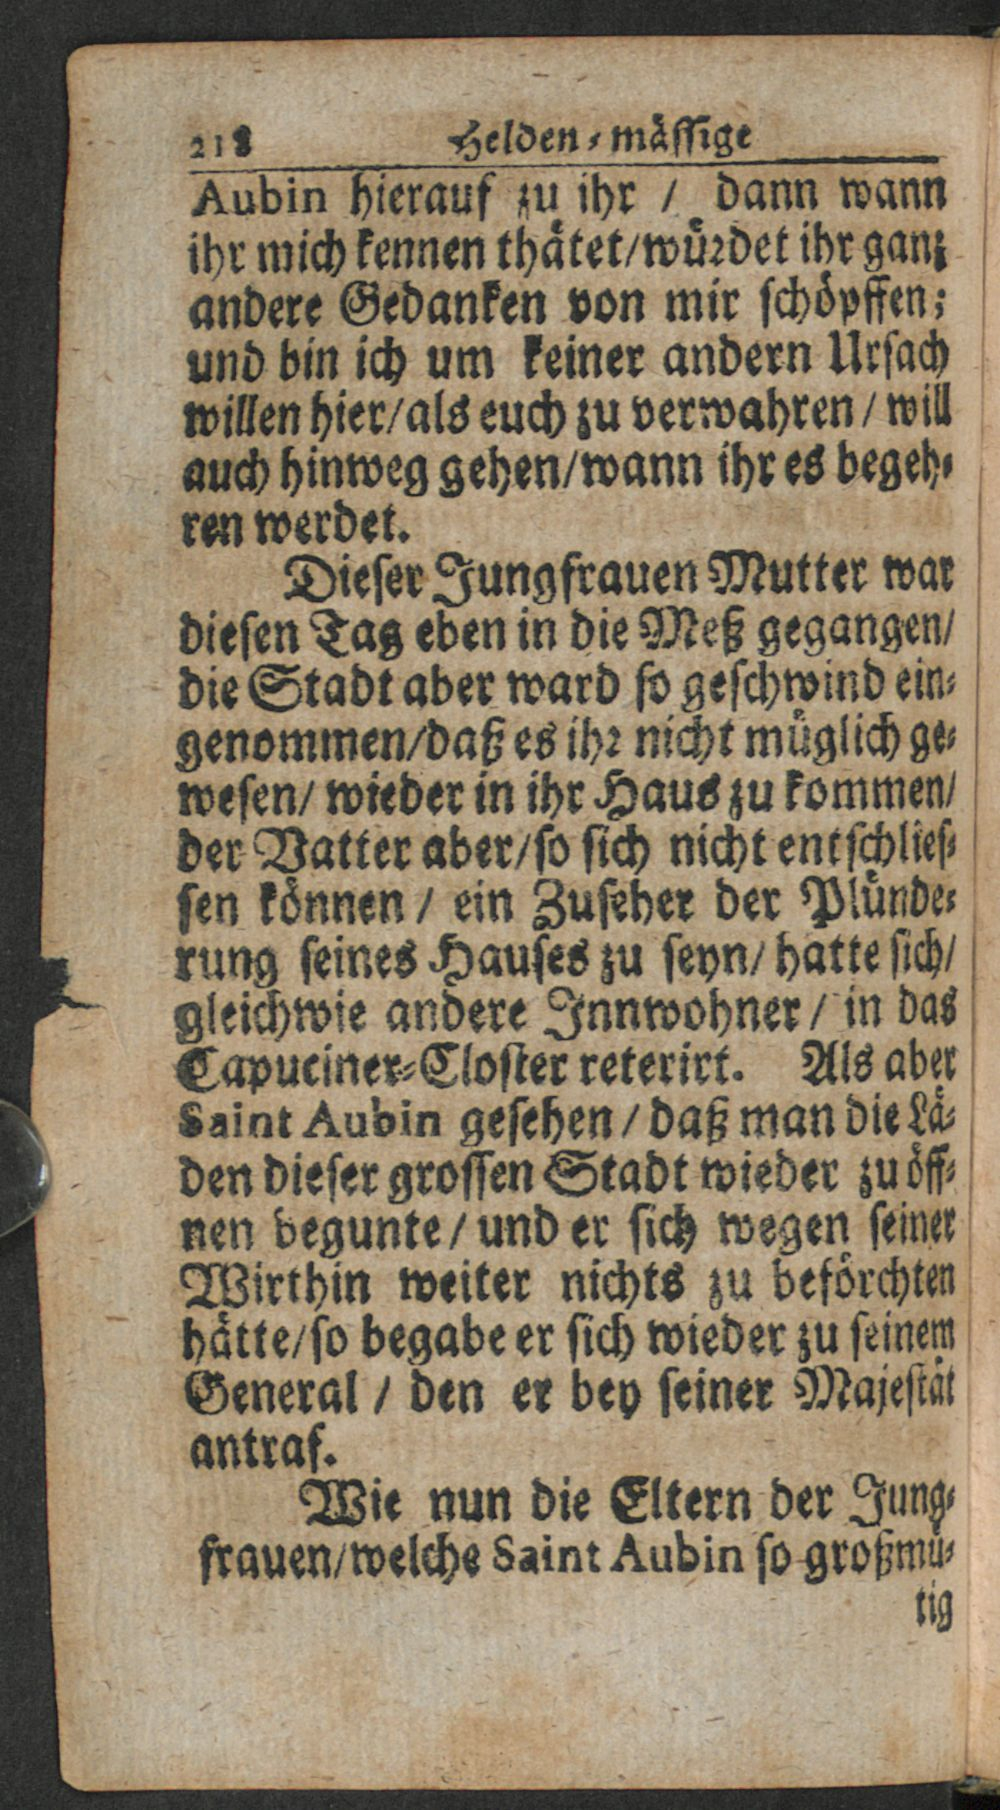 218 Helden-mässige
Aubin hierauf zu ihr / dann wann
ihr mich kennen thätet/würdet ihr gantz
andere Gedanken von mir schöpffen;
und bin ich um keiner andern Ursach
willen hier/als euch zu verwahren / will
auch hinweg gehen/wann ihr es begeh-
ren werdet.
Dieser Jungfrauen Mutter war
diesen Tag eben in die Meß gegangen/
die Stadt aber ward so geschwind ein-
genommen/daß es ihr nicht müglich ge-
wesen/ wieder in ihr Haus zu kommen/
der Vatter aber/so sich nicht entschlies-
sen können / ein Zuseher der Plünde-
rung seines Hauses zu seyn/ hatte sich/
gleichwie andere Innwohner / in das
Capuciner-Closter reterirt. Als aber
Saint Aubin gesehen / daß man die Lä-
den dieser grossen Stadt wieder zu öff-
nen begunte / und er sich wegen seiner
Wirthin weiter nichts zu beförchten
hätte/so begabe er sich wieder zu seinem
General / den er bey seiner Majestät
antraf.
Wie nun die Eltern der Jung-
frauen/welche Saint Aubin so großmü-
tig